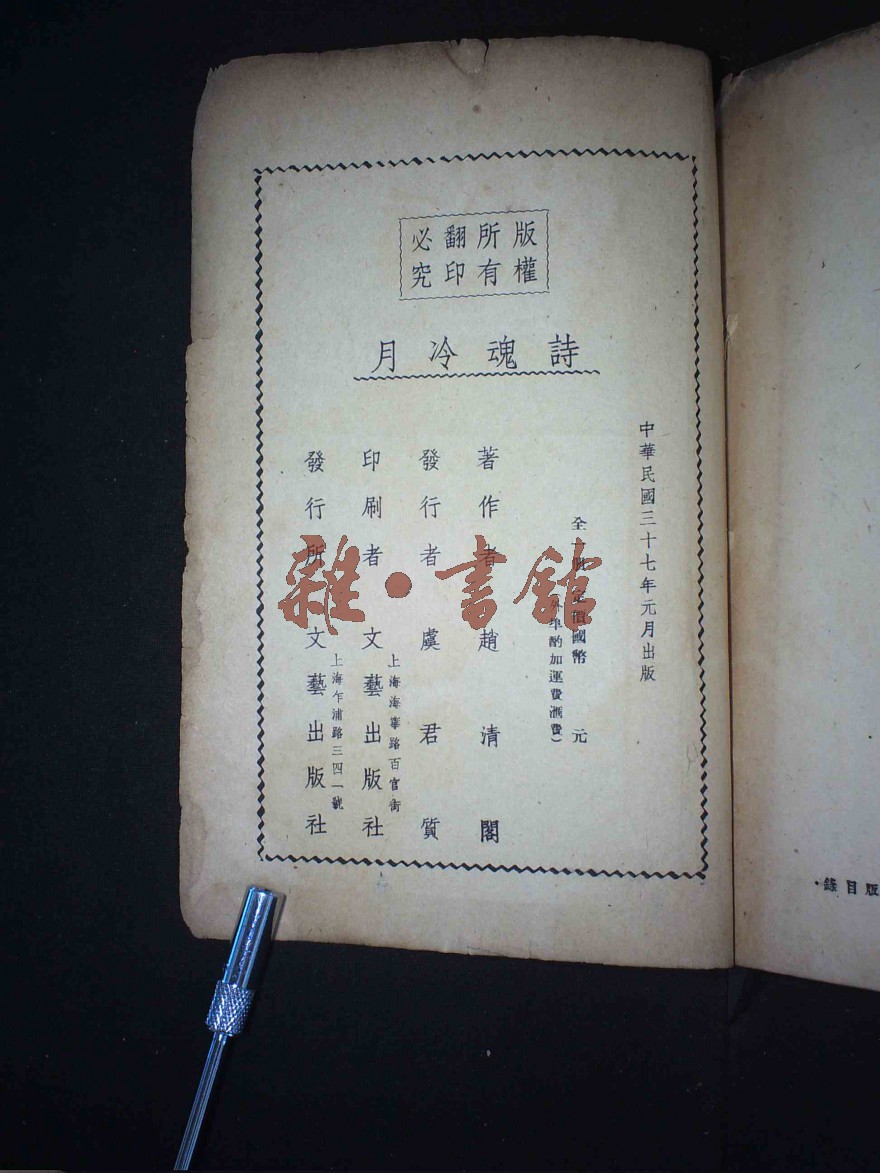 版權
所有
翻印
必究
詩魂冷月
中華民國三十七年元月出版
全一冊 定價國幣 元
外埠酌加運費滙費）
著作者 趙清閣
發行者 虞君質
印刷者 文藝出版社
上海海寧路百官街
發行所 文藝出版社
上海乍浦路三四一號
雜·書館
版目錄·